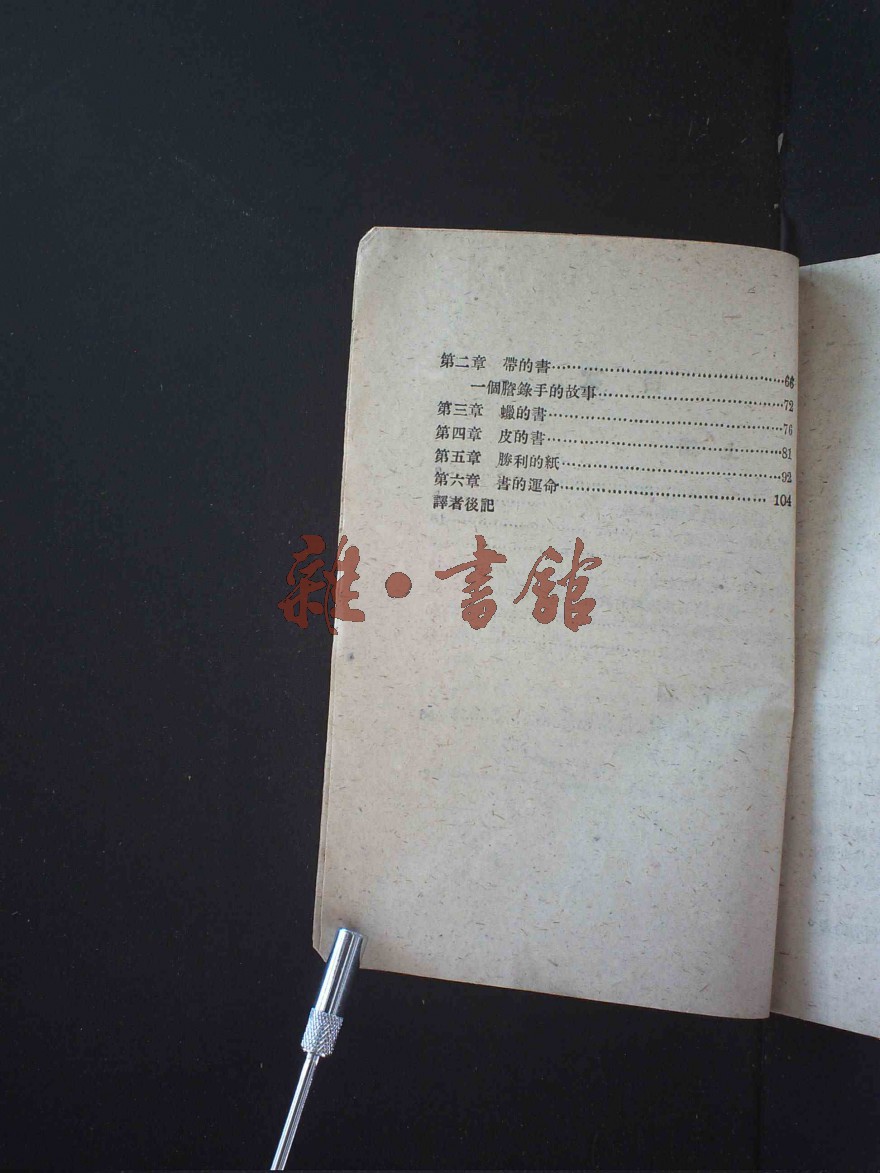 第二章 帶的書……………………………………66
一個謄錄手的故事………………………………72
第三章 蠟的書……………………………………76
第四章 皮的書……………………………………81
第五章 勝利的紙…………………………………92
第六章 書的運命…………………………………104
譯者後記
雜·書館